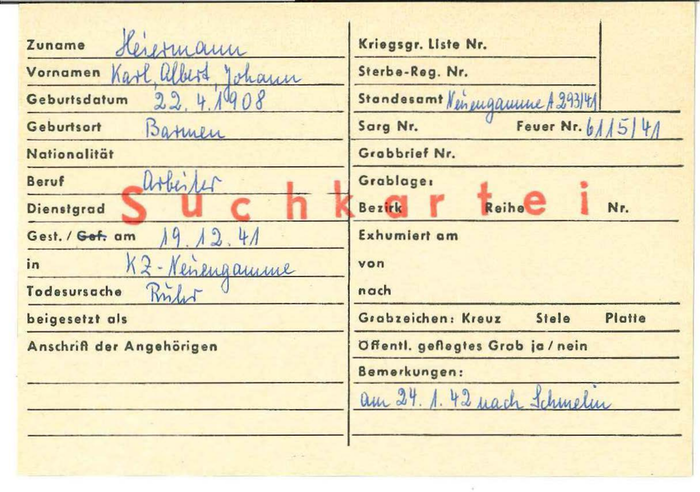 Zuname Heiermann
Vornamen Karl, Albert, Johann
Geburtsdatum 22.4.1908
Geburtsort Barmen
Nationalität
Beruf Arbeiter
Dienstgrad
Gest. / Gef. am 19.12.41
in KZ-Neuengamme
Todesursache Ruhr
beigesetzt als
Anschrift der Angehörigen
Suchkartei
Kriegsgr. Liste Nr.
Sterbe-Reg. Nr.
Standesamt Neuengamme A 293/41
Sarg Nr. Feuer Nr. 6115/41
Grabbrief Nr.
Grablage:
Bezirk Reihe Nr.
Exhumiert am
von
nach
Grabzeichen: Kreuz Stele Platte
Öffentl. geflegtes Grab ja / nein
Bemerkungen:
am 24.1.42 nach